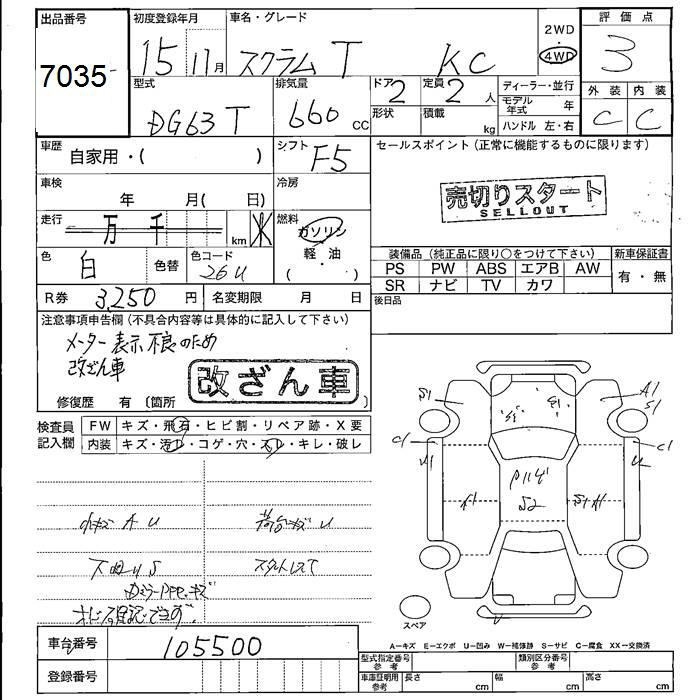 出品番号
7035
初度登録年月
15 11月
車名・グレード
スクラム T KC
2WD
4WD
評価点
3
型式
DG63T
排気量
660 cc
ドア
2
形状
定員
2 人
積載
kg
ディーラー・並行
モデル年式 年
ハンドル 左・右
外装 内装
C C
車歴
自家用・( )
シフト
F5
セールスポイント (正常に機能するものに限ります)
売切りスタート
SELLOUT
車検
年 月( 日)
冷房
走行
万 千 km
燃料
ガソリン
軽・油
( )
色
白
色替
色コード
26U
装備品 (純正品に限り○をつけて下さい)
PS PW ABS エアB AW
SR ナビ TV カワ
新車保証書
有・無
R券
3,250 円
名変期限 月 日
後日品
注意事項申告欄 (不具合内容等は具体的に記入して下さい)
メーター表示不良のため
改ざん車
改ざん車
修復歴 有 〔箇所 〕
検査員記入欄
FW キズ・飛石・ヒビ割・リペア跡・X要
内装 キズ・汚レ・コゲ・穴・スレ・キレ・破レ
小キズ A U
荷台キズ U
下回り S
車台番号
105500
登録番号
S1
A1
S1
C1
A1
C1
U
S2
スペア
A−キズ E−エクボ U−凹み W−補修跡 S−サビ C−腐食 XX−交換済
型式指定番号
参考
類別区分番号
参考
車庫証明用
参考
長さ cm
幅 cm
高さ cm